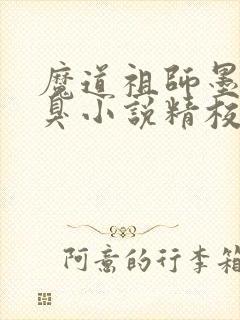 魔道祖師墨
臭小説精校
阿意的行李箱